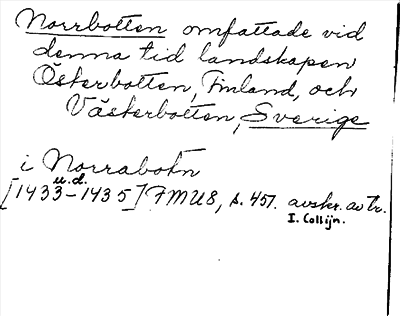 Norrbotten omfattade vid
denna tid landskapen
Österbotten, Finland, och
Västerbotten, Sverige
i Norrabotn
u.d.
[1433-1435] FMU8, s. 451. avskr. av tr.
I. Collijn.